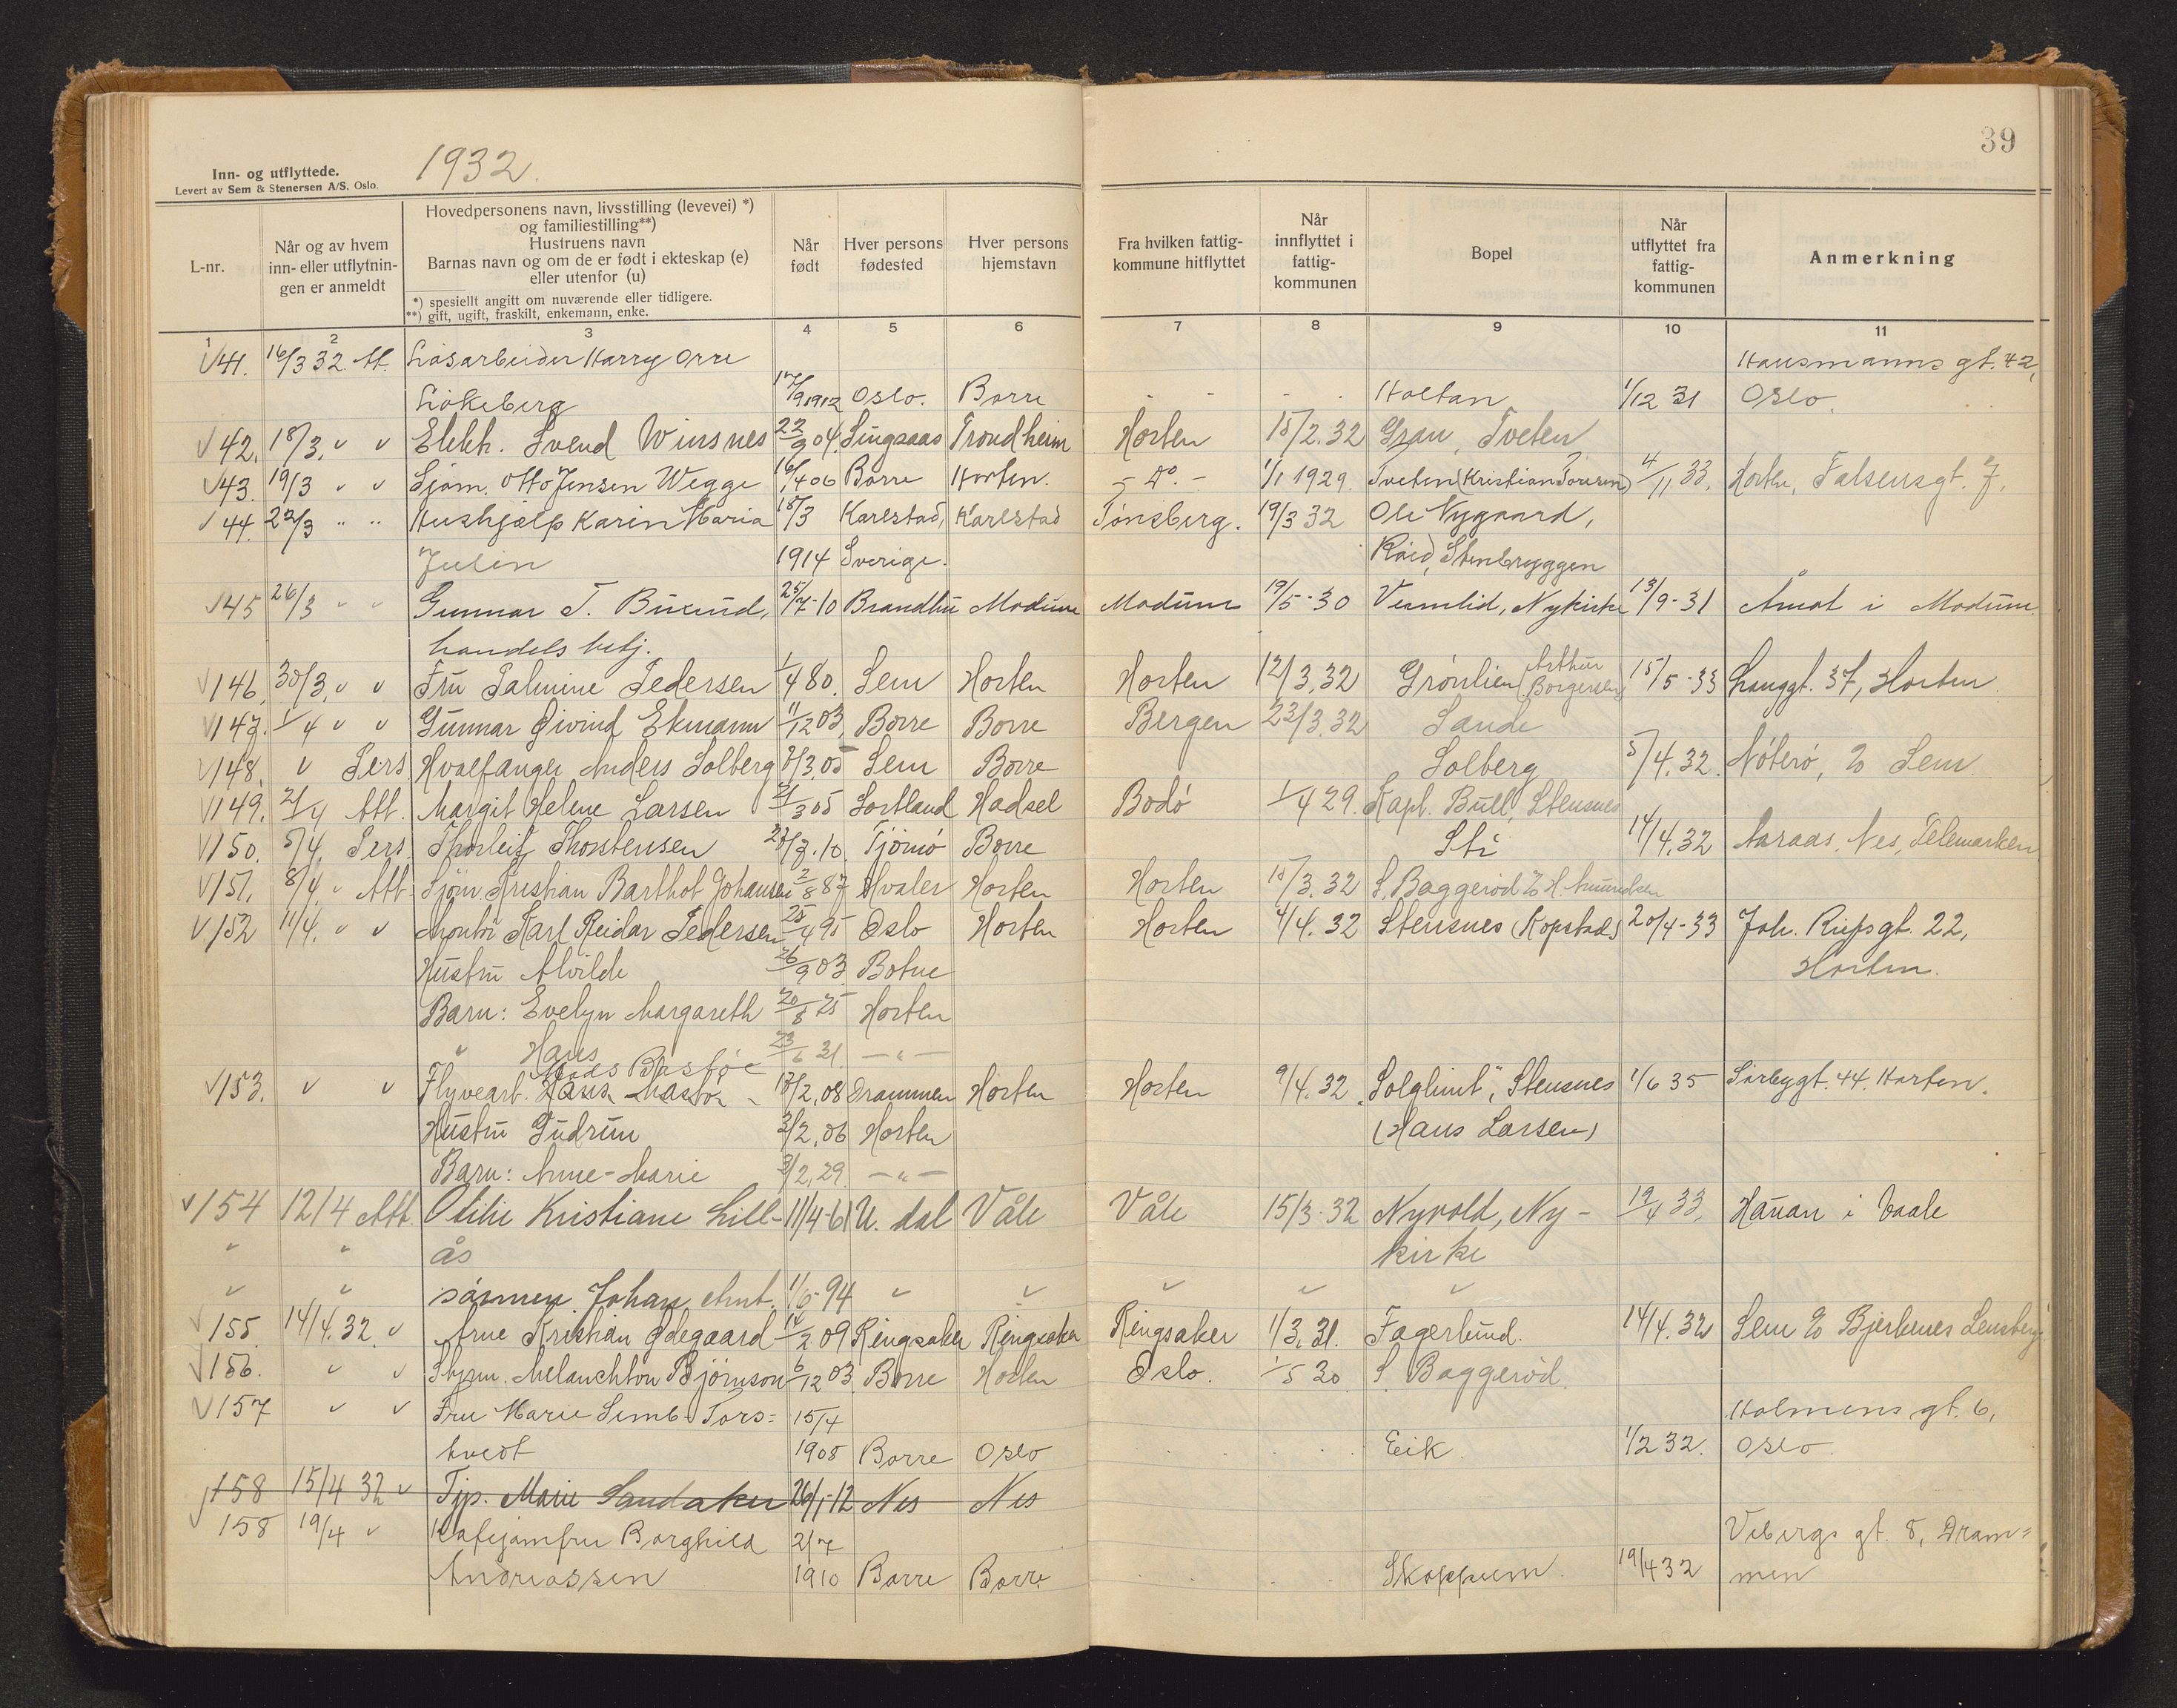 39
Inn- og utflyttede.
Levert av Sem & Stenersen A/S. Oslo.
1932.
L-nr. | Når og av hvem inn- eller utflytningen er anmeldt | Hovedpersonens navn, livsstilling (levevei) *) og familiestilling**) Hustruens navn Barnas navn og om de er født i ekteskap (e) eller utenfor (u) *) spesielt angitt om nuværende eller tidligere. **) gift, ugift, fraskilt, enkemann, enke. | Når født | Hver persons fødested | Hver persons hjemstavn | Fra hvilken fattigkommune hitflyttet | Når innflyttet i fattigkommunen | Bopel | Når utflyttet fra fattigkommunen | Anmerkning
1 2 3 4 5 6 7 8 9 10 11
41. 16/3 32. Att. Løsarbeider Harry Orre Hausmanns gt. 42,
Løkeberg 17/9 1912 Oslo. Borre Holtan 1/12 31 Oslo.
42. 18/3. " " Elekk. Svend Winsnes 22/9 04. Singsaas Trondheim Horten 15/2.32 Gran, Tveten
43. 19/3 " " Sjøm. Otto Jensen Wegge 16/4 06 Borre Horten. - Do. - 1/1 1929. Tveten (Kristian Toresen) 4/11 33. Horten, Falsensgt. 7.
44. 22/3 " " Hushjælp Karin Maria 18/3 Karlstad, Karlstad Tønsberg. 19/3 32 Ole Nygaard,
Julin 1914 Sverige. Røed, Stenbryggen
45 26/3 " " Gunnar T. 25/7-10 Brandbu Modum Modum 19/5-30 Nykirke 13/9-31 Åmot i Modum
handels betj.
146. 30/3. " " Fru Palmine Pedersen 1/4 80. Sem Horten Horten 12/3.32 Grønlien (Arthur Borgersen) 15/5-33 Langgt. 37, Horten
147. 1/4 " " Gunnar Øivind Ekmann 11/12 03. Borre Borre Bergen 23/3.32 Sande
148. " Pers Hvalfanger Anders Solberg 2/3.05 Sem Borre Solberg 5/4.32. Nøterø, % Sem
149. 2/4 Att. Margit Helene Larsen 2/3 05 Sortland Hadsel Bodø 1/4 29. Kapt. Bull, Stensnes
150. 5/4. Pers. Thorleif Thorstensen 10. Tjømø Borre Sti 14/4.32 Aaraas, Nes, Telemarken
151. 8/4. " Att. Sjøm Kristian Barthot Johansen 2/8 87 Hvaler Horten Horten 15/3.32 S. Baggerød % H. Amundsen
152 11/4. " " Montør Karl Reidar Pedersen 25/4 95 Oslo Horten Horten 4/4.32 Stensnes (Kopstad) 20/4-33 Joh. Riispsgt. 22,
Hustru Alvilde 26/9 03. Botne Horten.
Barn: Evelyn Margareth 20/8 25 Horten
" Hans 23/6 31. - " -
Mads Bastøe
153. " " Flyvearb. Hans Mastø 18/2.08 Drammen Horten Horten 9/4.32 "Solglimt", Stensnes 1/6 35 Sørbygt. 44. Horten.
Hustru Gudrun 3/2.06 Horten (Hans Larsen)
Barn: Anne-Marie 3/2.29. - " -
154 12/4 Att. Otilie Kristiane Lill- 11/4-61 U. dal Våle Våle 15/3-32 Nyvold, Ny- 19/4 33. Hanan i Vaale
" " ås kirke
" " sønnen Johan Ant. 1/6-94 " " " " "
155. 14/4.32. " Arne Kristian Ødegaard 14/2 09 Ringsaker Ringsaker Ringsaker 1/3.31. Fagerlund. 14/4.32 Sem % Bjerknes
156. " " Styrm. Melanchton Bjørnson 6/12 03. Borre Horten Oslo. 1/5 30. S. Baggerød.
157 " " Fru Marie Semb Tors= 15/4 Holmens gt. 6,
tvedt 1908 Borre Oslo Eik. 1/2 32. Oslo.
158 15/4 32 " Tjp. Marie Sandaker 26/1-12 Nes Nes
158 19/4 " Kafejomfru Borghild 2/7 Vibergs gt. 8, Dram=
Andreassen 1910 Borre Borre. Skoppum. 19/4 32 men